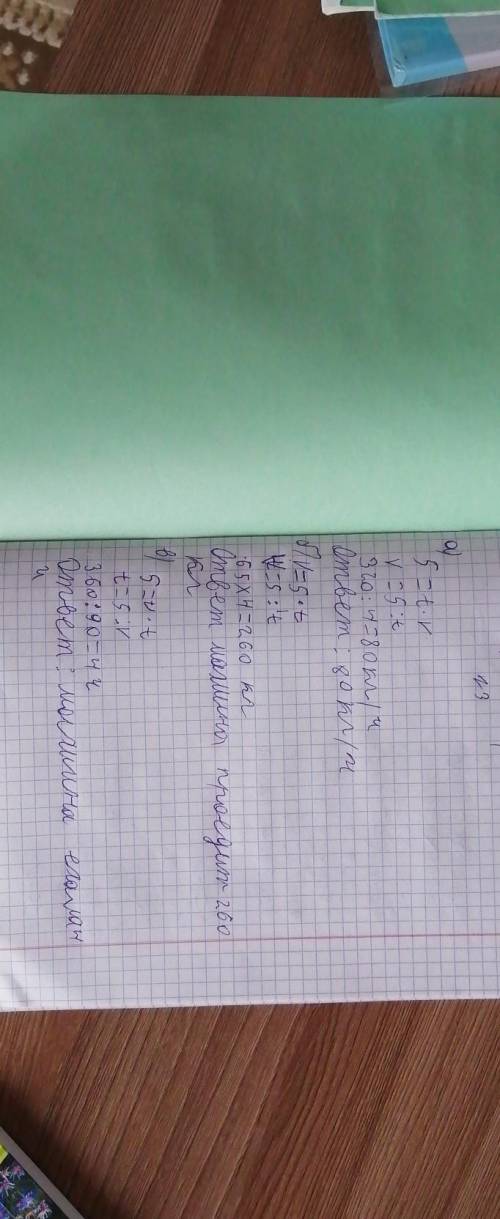 н3
а)
S=t·v
v=S:t
320:4=80км/ч
Ответ: 80 км/ч
б) S=v·t
65×4=260 км
Ответ машина проедит 260
км
в) S=v·t
t=S:v
360:90=4ч
Ответ: машина ехала 4
ч